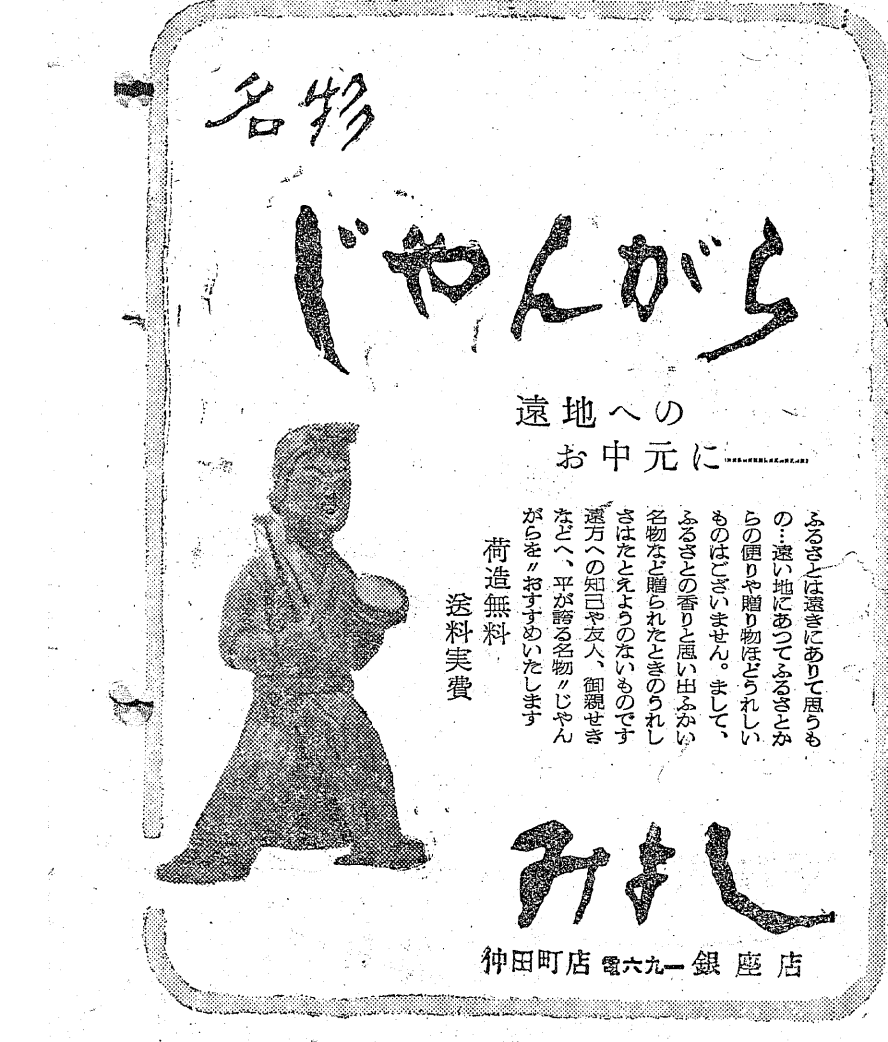 名物
じゃんがら
遠地への
お中元に
ふるさとは遠きにありて思うも
の…遠い地にあつてふるさとか
らの便りや贈り物ほどうれしい
ものはございません。まして、
ふるさとの香りと思い出ふかい
名物など贈られたときのうれし
さはたとえようのないものです
遠方への知己や友人、御親せき
などへ、平が誇る名物〃じゃん
がらを〃おすすめいたします
荷造無料
送料実費
みよし
仲田町店 電六九一 銀座店